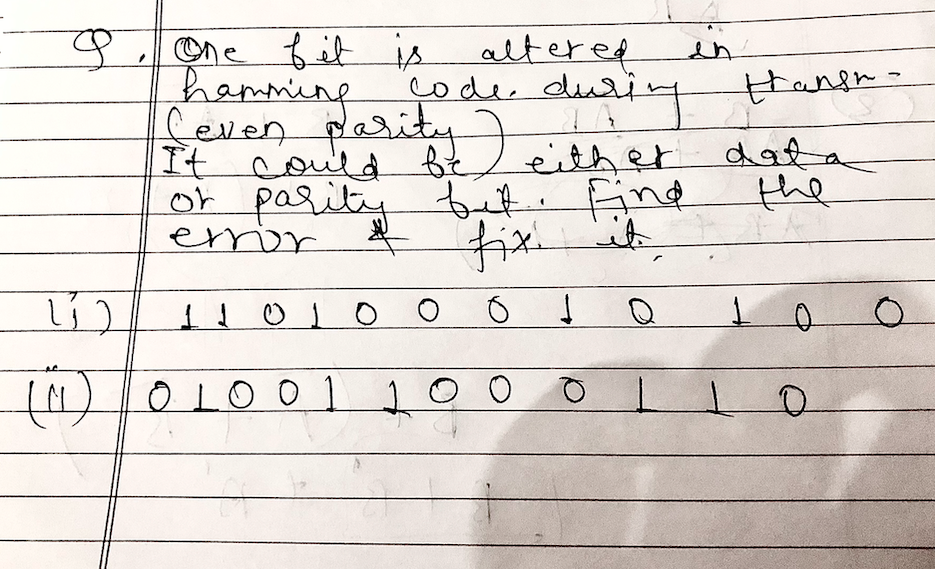 Q. One bit is altered in
hamming code. during transm-
(even parity)
It could be either data
or parity bit. Find the
error & fix it.
(i) 1 1 0 1 0 0 0 1 0 1 0 0
(ii) 0 1 0 0 1 1 0 0 0 1 1 0